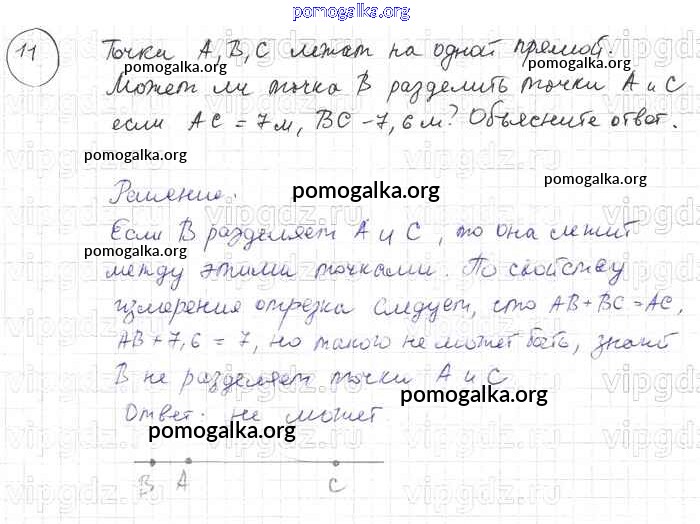 pomogalka.org
11 Точки А, В, С лежат на одной прямой.
pomogalka.org pomogalka.org
Может ли точка В разделить точки А и С
если АС = 7м, ВС - 7,6м? Объясните ответ.
pomogalka.org
vipgdz.ru
pomogalka.org
Решение: pomogalka.org
Если В разделяет А и С, то она лежит
pomogalka.org
между этими точками. По свойству
измерения отрезка следует, что АВ+ВС=АС,
АВ+7,6 = 7, но такого не может быть, значит
В не разделяет точки А и С
pomogalka.org
Ответ. не может
pomogalka.org
В А С